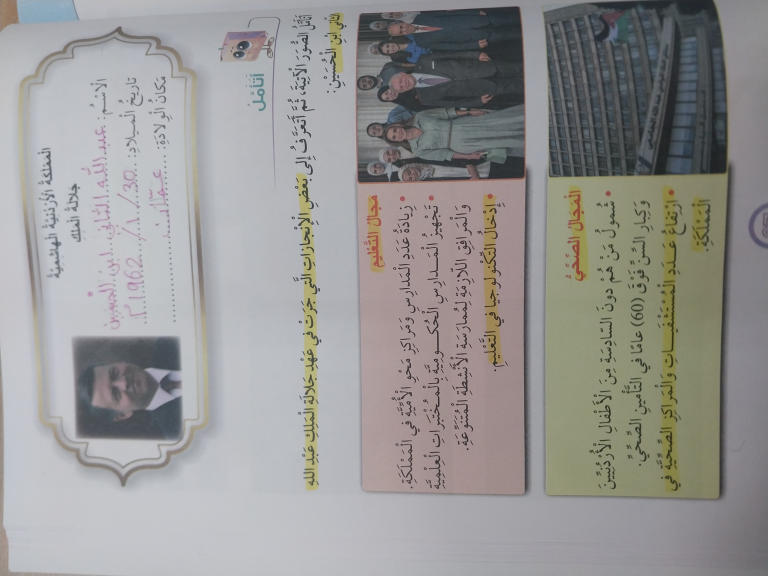 المَمْلَكَةُ الأُرْدُنِيَّةُ الهاشِمِيَّةُ
جَلالَةُ المَلِكِ
الاسْمُ: عبد الله الثاني ابن الحسين
تاريخُ الميلادِ: 30 / 1 / 1962 م
مَكانُ الوِلادَةِ: عمان
أَتَأَمَّلُ
أَتَأَمَّلُ الصُّوَرَ الْآتِيَةَ، ثُمَّ أَتَعَرَّفُ إِلى بَعْضِ الْإِنْجازاتِ الَّتي جَرَتْ في عَهْدِ جَلالَةِ الْمَلِكِ عَبْدِ اللهِ
الثّاني ابْنِ الْحُسَيْنِ:
مَجالُ التَّعْليمِ
• زِيادَةُ عَدَدِ الْمَدارِسِ وَمَراكِزِ مَحْوِ الْأُمِّيَّةِ في الْمَمْلَكَةِ.
• تَجْهيزُ الْمَدارِسِ الْحُكومِيَّةِ بِالْمُخْتَبَراتِ الْعِلْمِيَّةِ
وَالْمَرافِقِ اللّازِمَةِ لِمُمارَسَةِ الْأَنْشِطَةِ الْمُتَنَوِّعَةِ.
• إِدْخالُ التِّكْنولوجيا في التَّعْليمِ.
الْمَجالُ الصِّحِّيُّ
• شُمولُ مَنْ هُمْ دونَ السّادِسَةِ مِنَ الْأَطْفالِ الْأُرْدُنِيّينَ
وَكِبارِ السِّنِّ فَوْقَ (60) عامًا في التَّأْمينِ الصِّحِّيِّ.
• ارْتِفاعُ عَدَدِ الْمُسْتَشْفَياتِ وَالْمَراكِزِ الصِّحِّيَّةِ في
الْمَمْلَكَةِ.